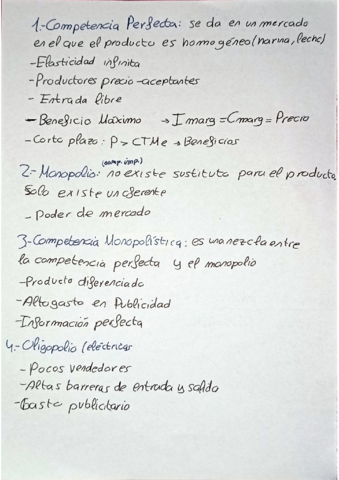 1.-Competencia Perfecta: se da en un mercado
en el que el producto es homogéneo (harina, leche)
-Elasticidad infinita
-Productores precio-aceptantes
- Entrada libre
- Beneficio Máximo → Imarg = Cmarg = Precio
-Corto plazo: P > CTMe → Beneficios
(comp. imp)
2.- Monopolio: no existe sustituto para el producto
Solo existe un oferente
- Poder de mercado
3-Competencia Monopolística: es una mezcla entre
la competencia perfecta y el monopolio
-Producto diferenciado
-Alto gasto en Publicidad
-Información perfecta
4.-Oligopolio (eléctricas
- Pocos vendedores
-Altas barreras de entrada y salida
-Gasto publicitario